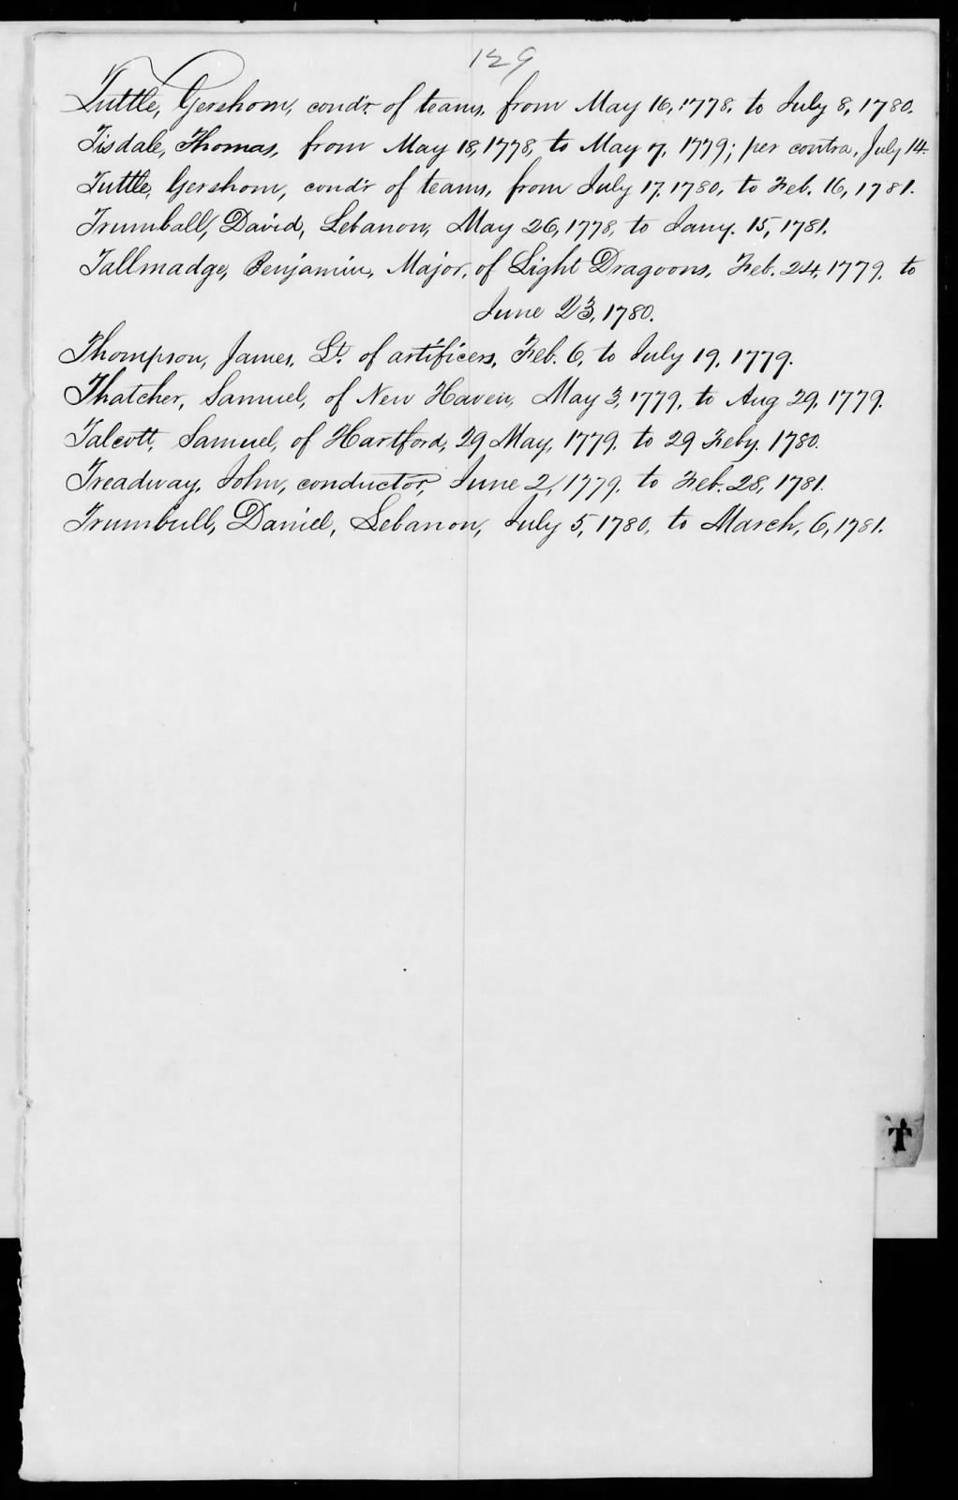 129
Tuttle, Gershom, cond'r. of teams, from May 16, 1778, to July 8, 1780.
Tisdale, Thomas, from May 18, 1778, to May 7, 1779; per contra, July 14.
Tuttle, Gershom, cond'r of teams, from July 17, 1780, to Feb. 16, 1781.
Trumball, David, Lebanon, May 26, 1778, to Jany. 15, 1781.
Tallmadge, Benjamin, Major, of Light Dragoons, Feb. 24, 1779, to
June 23, 1780.
Thompson, James, Lt. of artificers, Feb. 6, to July 19, 1779.
Thatcher, Samuel, of New Haven, May 3, 1779, to Aug 29, 1779.
Talcott, Samuel, of Hartford, 29 May, 1779, to 29 Feby. 1780.
Treadway, John, conductor, June 2, 1779, to Feb. 28, 1781.
Trumbull, Daniel, Lebanon, July 5, 1780, to March, 6, 1781.
T